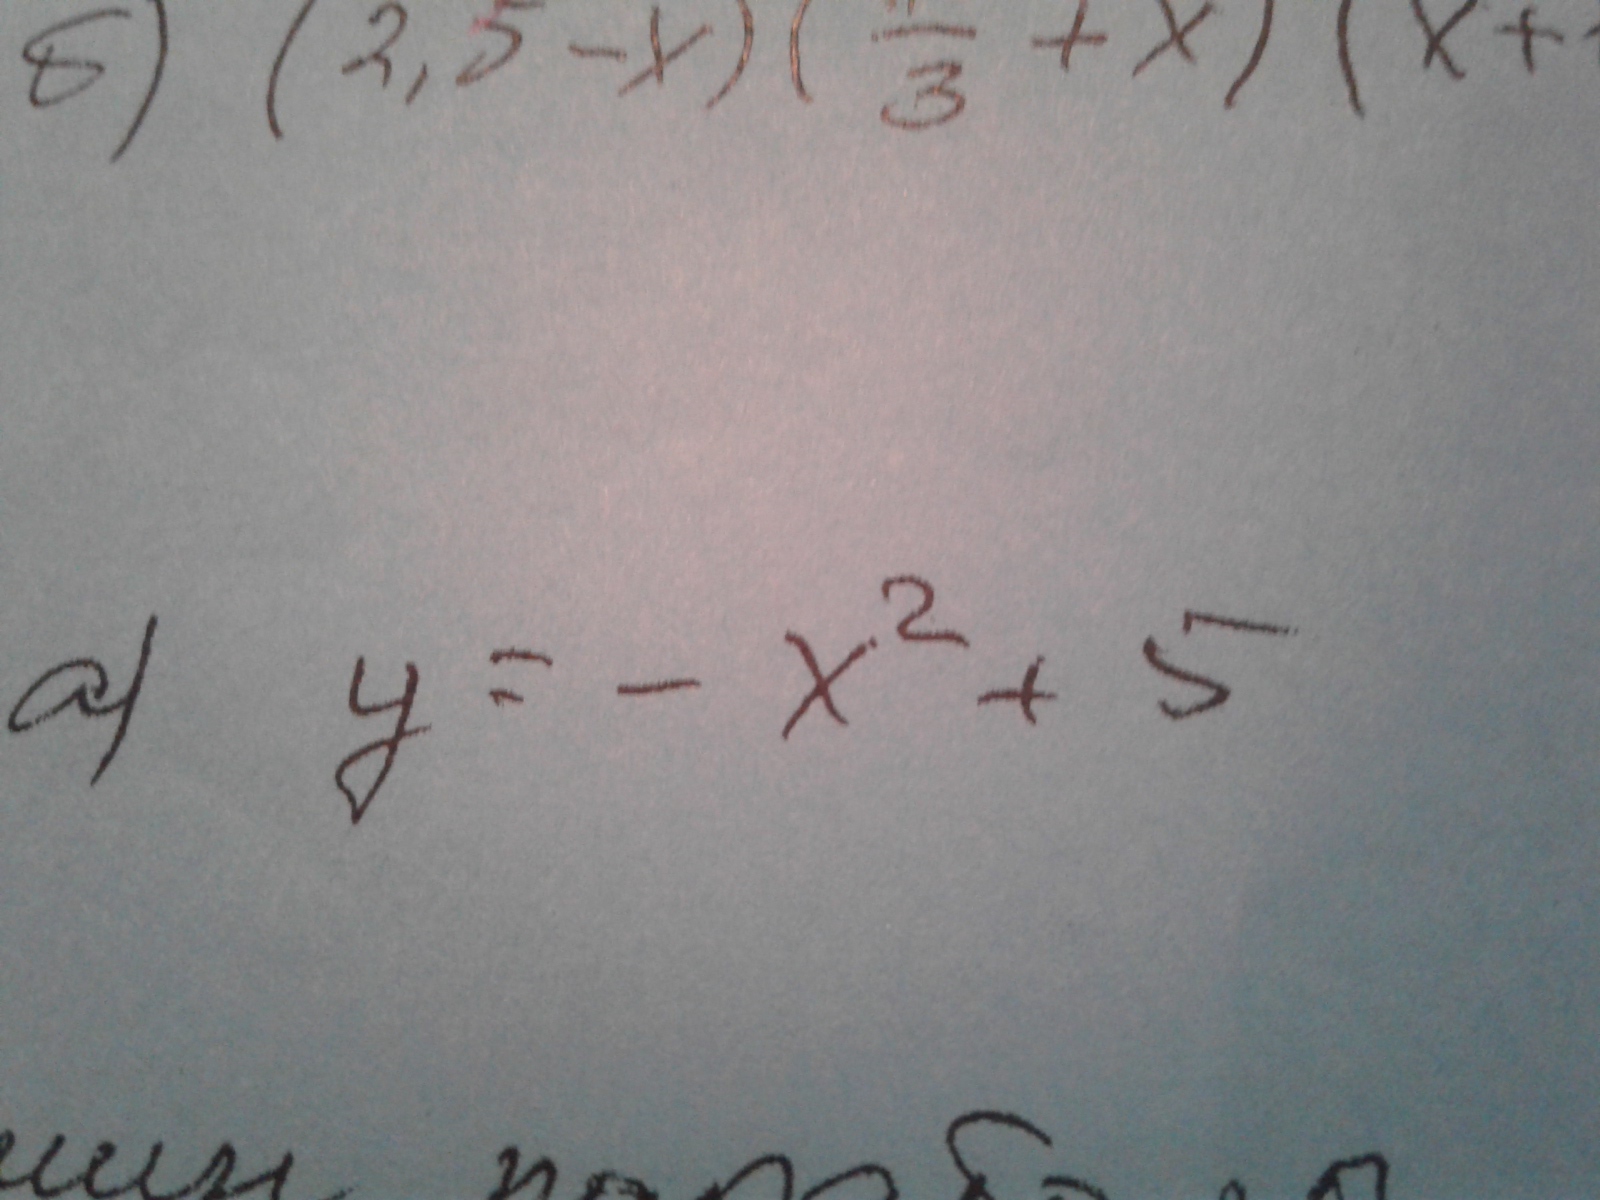 б) (2,5 - x)( /3 + x)(x +
а) y = - x² + 5